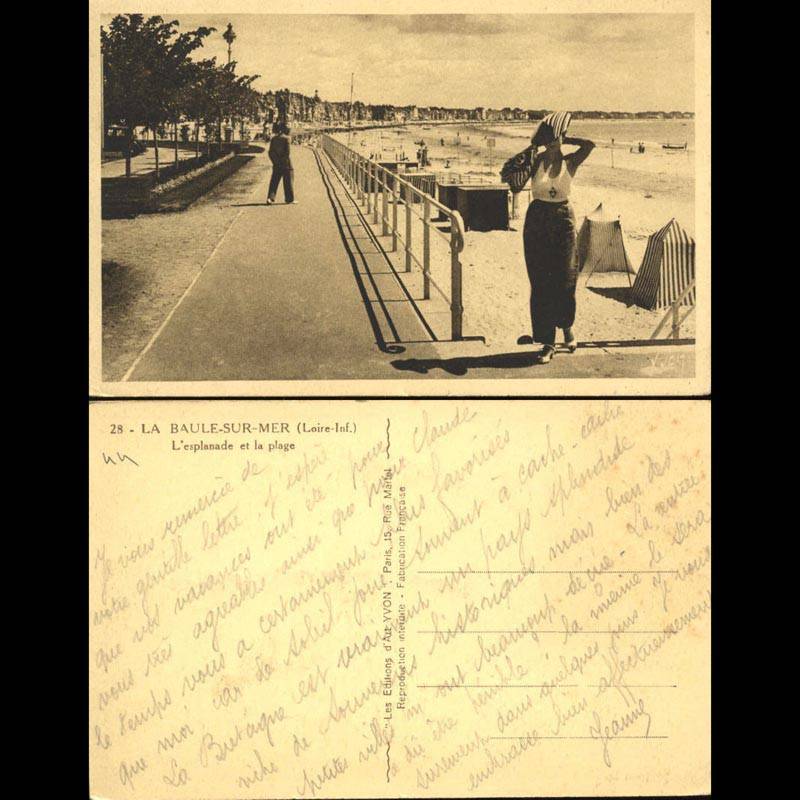 28 - LA BAULE-SUR-MER (Loire-Inf.)
L'esplanade et la plage
44
"Les Editions d'Art YVON", Paris, 15, Rue Martel
Reproduction interdite - Fabrication Française
Je vous remercie de
votre gentille lettre. J'espère
que vos vacances ont été pour
vous très agréables ainsi que pour Claude
le temps vous a certainement plus favorisés
que moi, car le soleil joue souvent à cache-cache
La Bretagne est vraiment un pays splendide
riche de souvenirs historiques mais bien des
petites villes m'ont beaucoup déçue - La rentrée
a dû être pénible, à la mienne le sera
surement dans quelques jours. Je vous
embrasse bien affectueusement
Jeanne